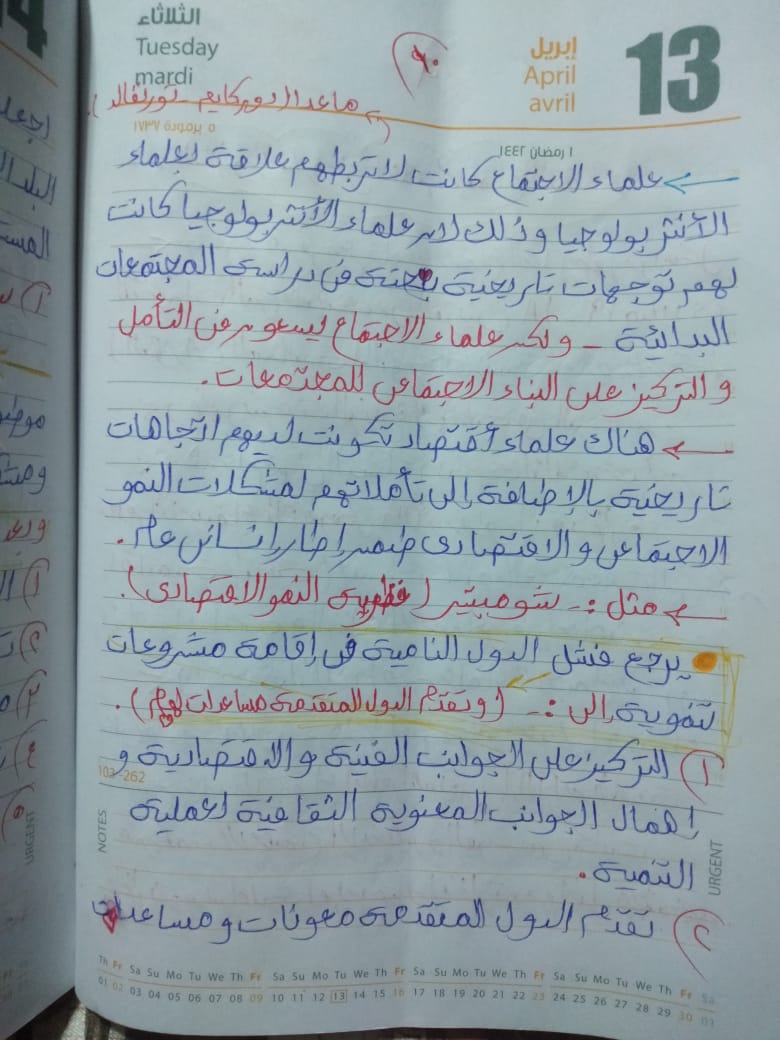 الثلاثاء
Tuesday
mardi
٩٠
إبريل
April
avril
13
ماعدا (دوركايم - تورنفالد).
٥ برمودة ١٧٣٧
١ رمضان ١٤٤٢
علماء الاجتماع كانت لا تربطهم علاقة بعلماء
الأنثربولوجيا وذلك لان علماء الأنثربولوجيا كانت
لهم توجهات تاريخية بحتة فى دراسة المجتمعات
البدائية - ولكن علماء الاجتماع يسعون فى التأمل
و التركيز على البناء الاجتماعى للمجتمعات.
هناك علماء أقتصاد تكونت لديهم اتجاهات
تاريخية بالإضافة إلى تأملاتهم لمشكلات النمو
الاجتماعى و الاقتصادى ضمن إطار إنسانى عام.
مثل :- شومبيتر (نظرية النمو الاقتصادى).
يرجع فشل الدول النامية فى إقامة مشروعات
تنموية إلى :- (وتقدم الدول المتقدمة مساعدات لهم).
١) التركيز على الجوانب الفنية والاقتصادية و
إهمال الجوانب المعنوية الثقافية لعملية
التنمية.
٢) تقدم الدول المتقدمة معونات ومساعدات
103-262
NOTES
URGENT
URGENT
Th Fr Sa Su Mo Tu We Th Fr Sa Su Mo Tu We Th Fr Sa Su Mo Tu We Th Fr Sa Su Mo Tu We Th Fr Sa
01 02 03 04 05 06 07 08 09 10 11 12 13 14 15 16 17 18 19 20 21 22 23 24 25 26 27 28 29 30 01